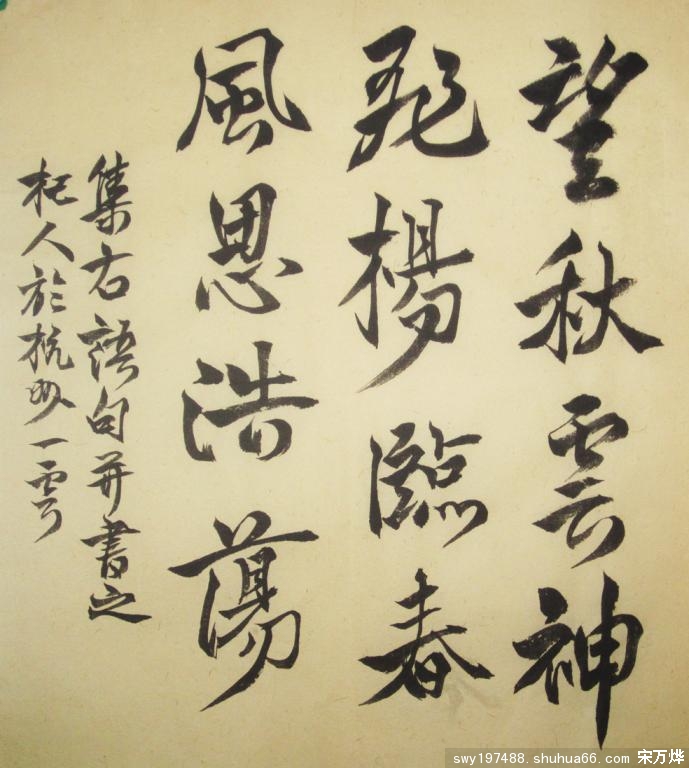 望秋雲神
飛楊臨春
風思浩蕩
集右語句并書之
杞人於杭州一
swy197488. shuhua66. com 宋万烨